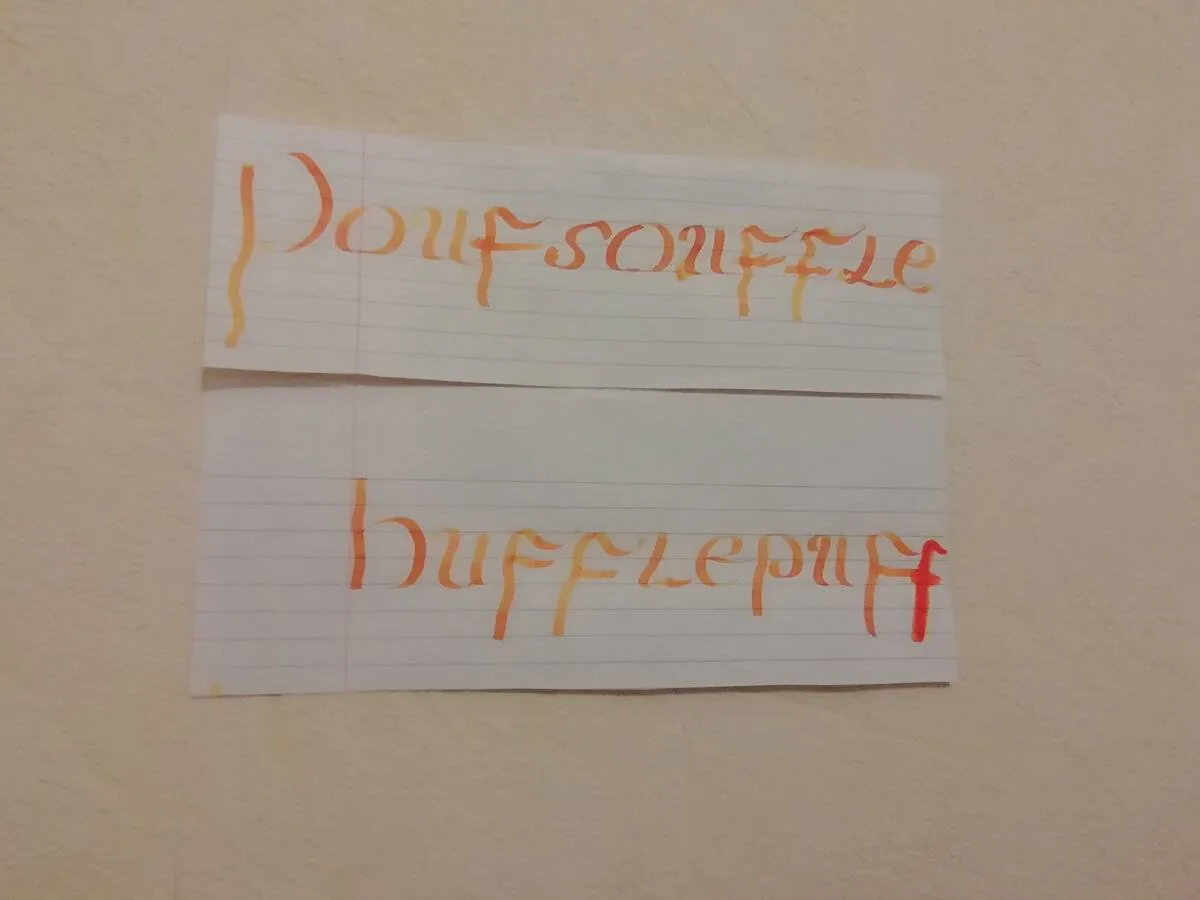 Poufsouffle
hufflepuff